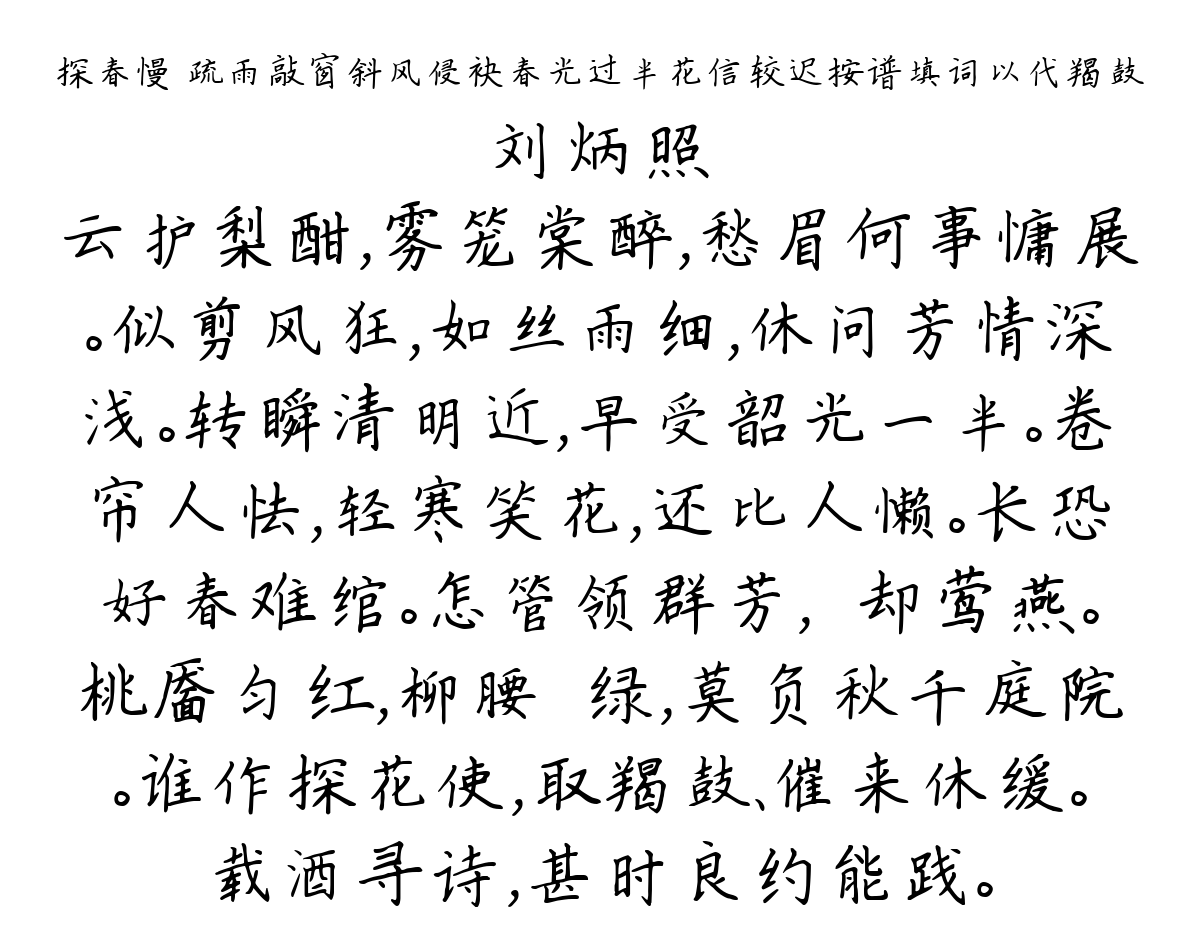 探春慢 疏雨敲窗斜风侵袂春光过半花信较迟按谱填词以代羯鼓
刘炳照
云护梨酣,雾笼棠醉,愁眉何事慵展
。似剪风狂,如丝雨细,休问芳情深
浅。转瞬清明近,早受韶光一半。卷
帘人怯,轻寒笑花,还比人懒。长恐
好春难绾。怎管领群芳, 却莺燕。
桃靥匀红,柳腰 绿,莫负秋千庭院
。谁作探花使,取羯鼓、催来休缓。
载酒寻诗,甚时良约能践。